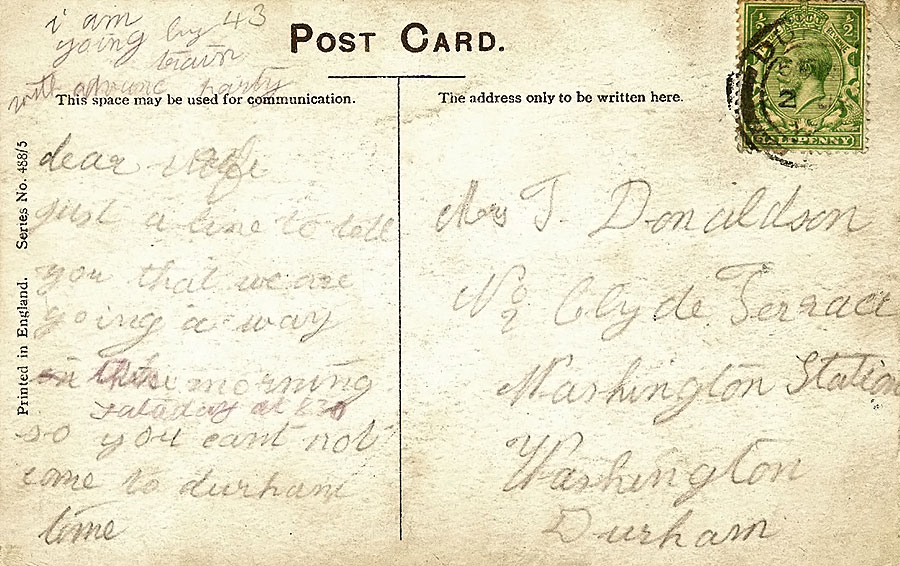 i am
going by 43
train
with advance party
POST CARD.
This space may be used for communication.
The address only to be written here.
Printed in England. Series No. 488/5
dear wife
just a line to tell
you that we are
going a way
on this morning
saturday at 830
so you cant not
come to durham
time
Mrs T. Donaldson
No 2 Clyde Terrace
Washington Station
Washington
Durham
HALFPENNY